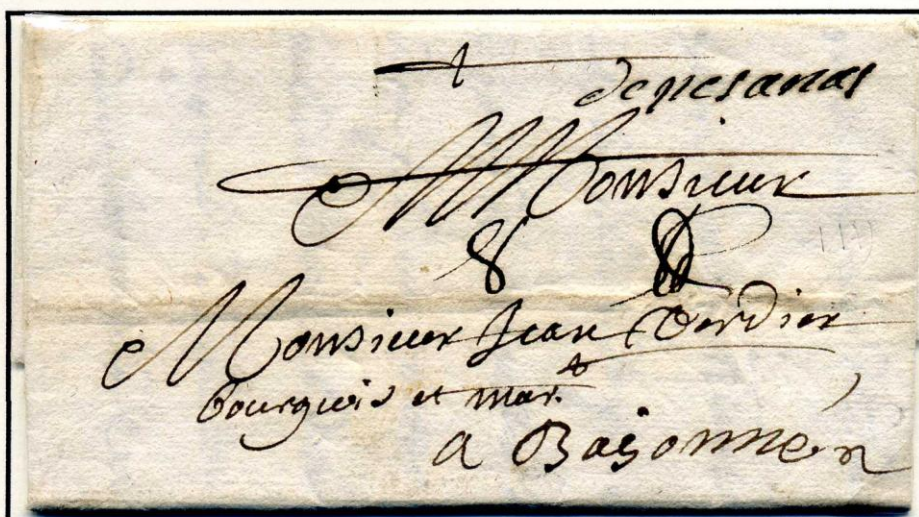 de pesanas
Monsieur
8 8
Monsieur Jean Verdier
bourgois et mar.
a Bayonne